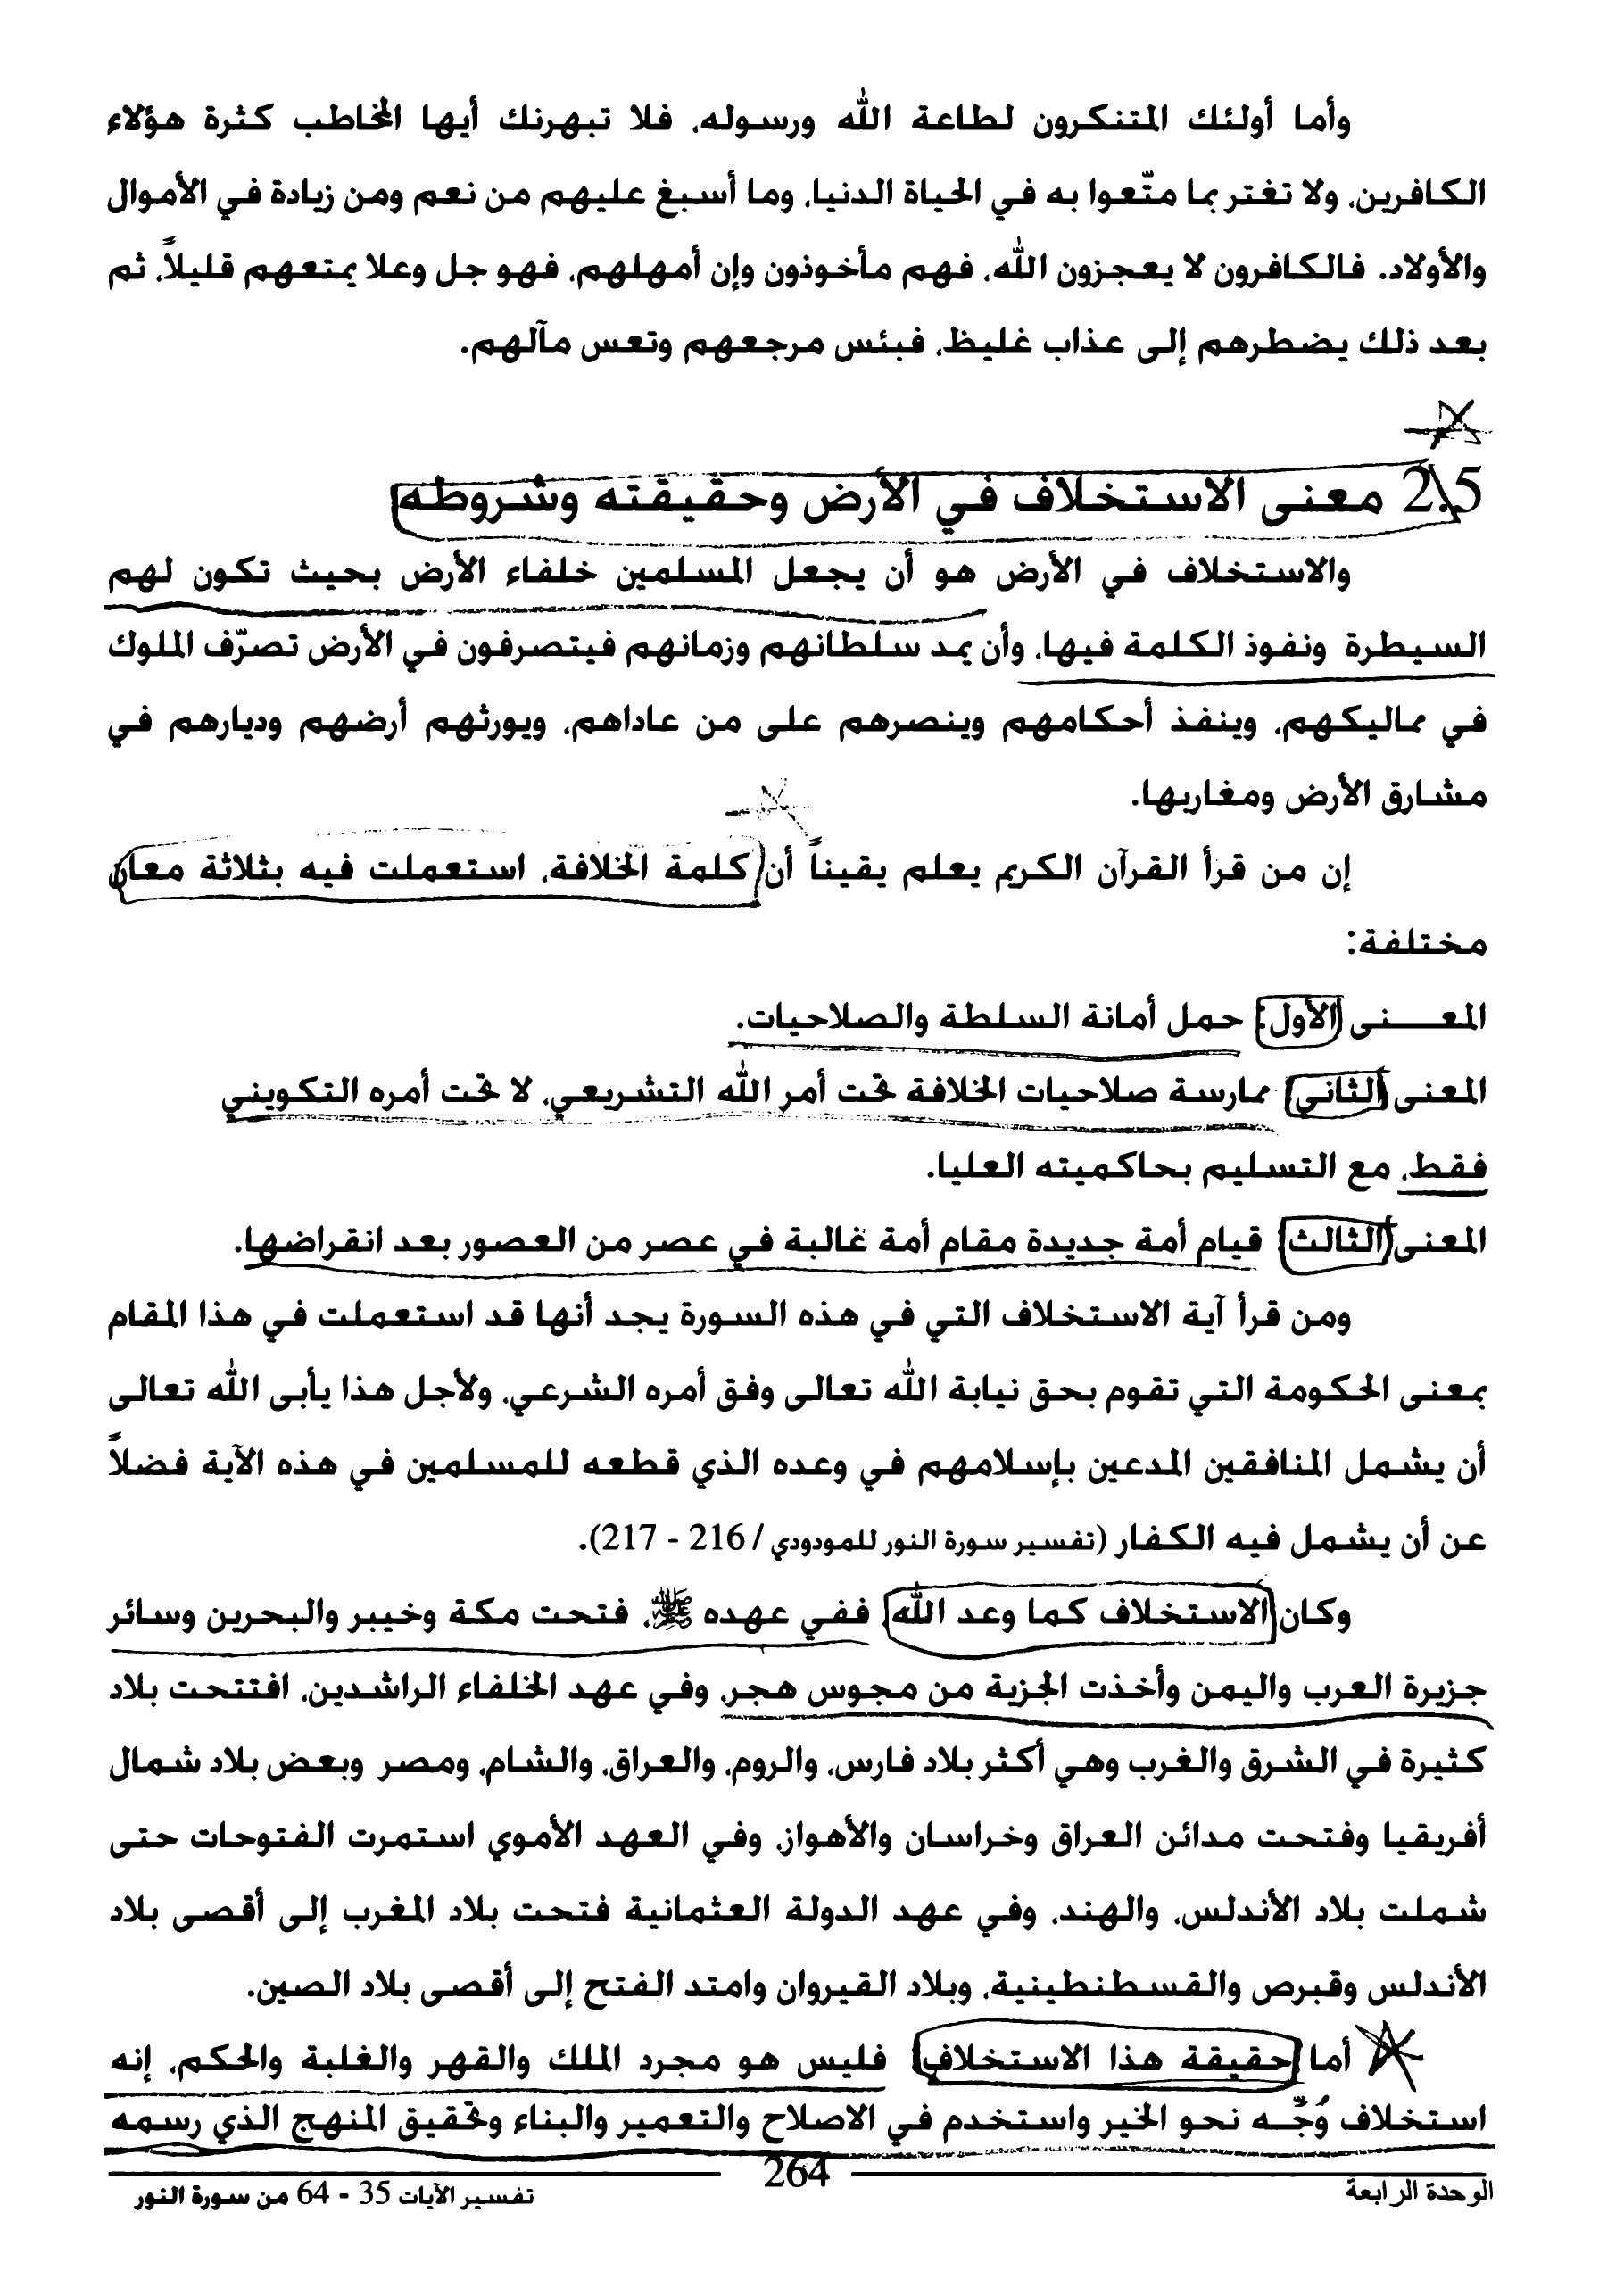 وأما أولئك المتنكرون لطاعة الله ورسوله، فلا تبهرنك أيها المخاطب كثرة هؤلاء
الكافرين، ولا تغتر بما متّعوا به في الحياة الدنيا، وما أسبغ عليهم من نعم ومن زيادة في الأموال
والأولاد. فالكافرون لا يعجزون الله، فهم مأخوذون وإن أمهلهم، فهو جل وعلا يمتعهم قليلاً، ثم
بعد ذلك يضطرهم إلى عذاب غليظ، فبئس مرجعهم وتعس مآلهم.
2\5 معنى الاستخلاف في الأرض وحقيقته وشروطه
والاستخلاف في الأرض هو أن يجعل المسلمين خلفاء الأرض بحيث تكون لهم
السيطرة ونفوذ الكلمة فيها، وأن يمد سلطانهم وزمانهم فيتصرفون في الأرض تصرّف الملوك
في مماليكهم، وينفذ أحكامهم وينصرهم على من عاداهم، ويورثهم أرضهم وديارهم في
مشارق الأرض ومغاربها.
إن من قرأ القرآن الكريم يعلم يقيناً أن كلمة الخلافة، استعملت فيه بثلاثة معان
مختلفة:
المعـــنى الأول: حمل أمانة السلطة والصلاحيات.
المعنى الثاني: ممارسة صلاحيات الخلافة تحت أمر الله التشريعي، لا تحت أمره التكويني
فقط، مع التسليم بحاكميته العليا.
المعنى الثالث: قيام أمة جديدة مقام أمة غالبة في عصر من العصور بعد انقراضها.
ومن قرأ آية الاستخلاف التي في هذه السورة يجد أنها قد استعملت في هذا المقام
بمعنى الحكومة التي تقوم بحق نيابة الله تعالى وفق أمره الشرعي، ولأجل هذا يأبى الله تعالى
أن يشمل المنافقين المدعين بإسلامهم في وعده الذي قطعه للمسلمين في هذه الآية فضلاً
عن أن يشمل فيه الكفار (تفسير سورة النور للمودودي / 216 - 217).
وكان الاستخلاف كما وعد الله، ففي عهده ﷺ، فتحت مكة وخيبر والبحرين وسائر
جزيرة العرب واليمن وأخذت الجزية من مجوس هجر، وفي عهد الخلفاء الراشدين، افتتحت بلاد
كثيرة في الشرق والغرب وهي أكثر بلاد فارس، والروم، والعراق، والشام، ومصر وبعض بلاد شمال
أفريقيا وفتحت مدائن العراق وخراسان والأهواز، وفي العهد الأموي استمرت الفتوحات حتى
شملت بلاد الأندلس، والهند، وفي عهد الدولة العثمانية فتحت بلاد المغرب إلى أقصى بلاد
الأندلس وقبرص والقسطنطينية، وبلاد القيروان وامتد الفتح إلى أقصى بلاد الصين.
أما حقيقة هذا الاستخلاف، فليس هو مجرد الملك والقهر والغلبة والحكم، إنه
استخلاف وُجّـه نحو الخير واستخدم في الاصلاح والتعمير والبناء وتحقيق المنهج الذي رسمه
264
الوحدة الرابعة
تفسير الآيات 35 - 64 من سورة النور